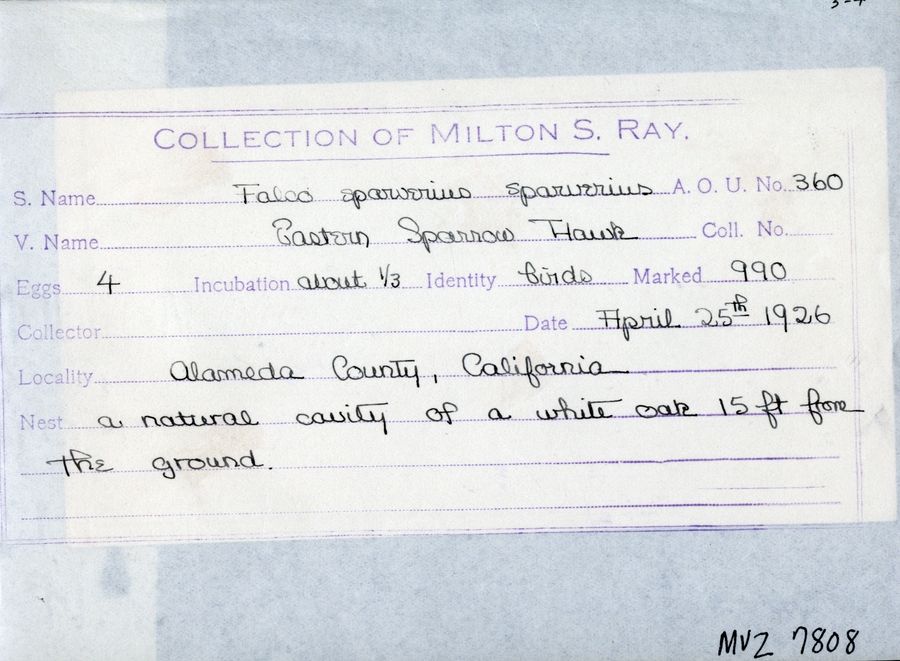 COLLECTION OF MILTON S. RAY.
S. Name Falco sparverius sparverius A. O. U. No. 360
V. Name Eastern Sparrow Hawk Coll. No.
Eggs 4 Incubation about 1/3 Identity birds Marked 990
Collector Date April 25th 1926
Locality Alameda County, California
Nest a natural cavity of a white oak 15 ft from
the ground.
MVZ 7808